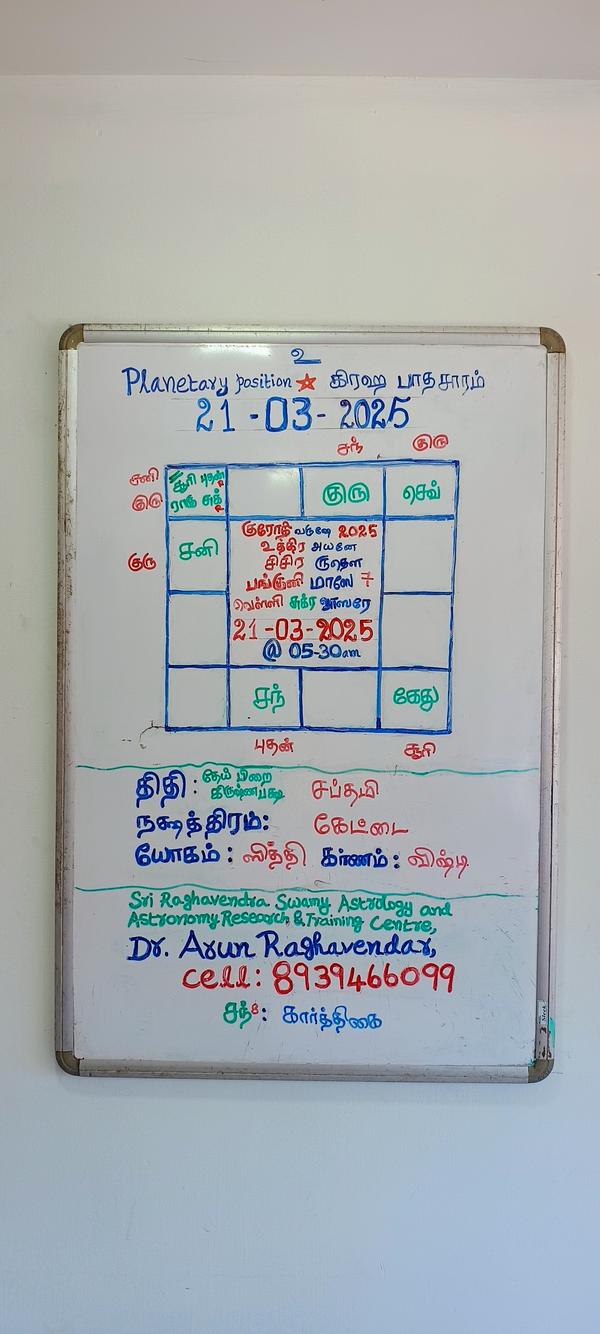 உ
Planetary position ★ கிரஹ பாதசாரம்
21-03-2025
சந் குரு
சனி சூரி புதன்
குரு ராகு சுக் குரு செவ்
குரோதி வருஷே 2025
குரு சனி உத்திர அயனே
சிசிர ருதௌ
பங்குனி மாஸே 7
வெள்ளி சுக்ர வாஸரே
21-03-2025
@ 05-30am
சந் கேது
புதன் சூரி
திதி: தேய் பிறை சப்தமி
கிருஷ்ணபக்ஷ
நக்ஷத்திரம்: கேட்டை
யோகம்: ஸித்தி கர்ணம்: விஷ்டி
Sri Raghavendra Swamy Astrology and
Astronomy Research & Training Centre,
Dr. Arun Raghavendar,
cell: 8939466099
சந்8: கார்த்திகை